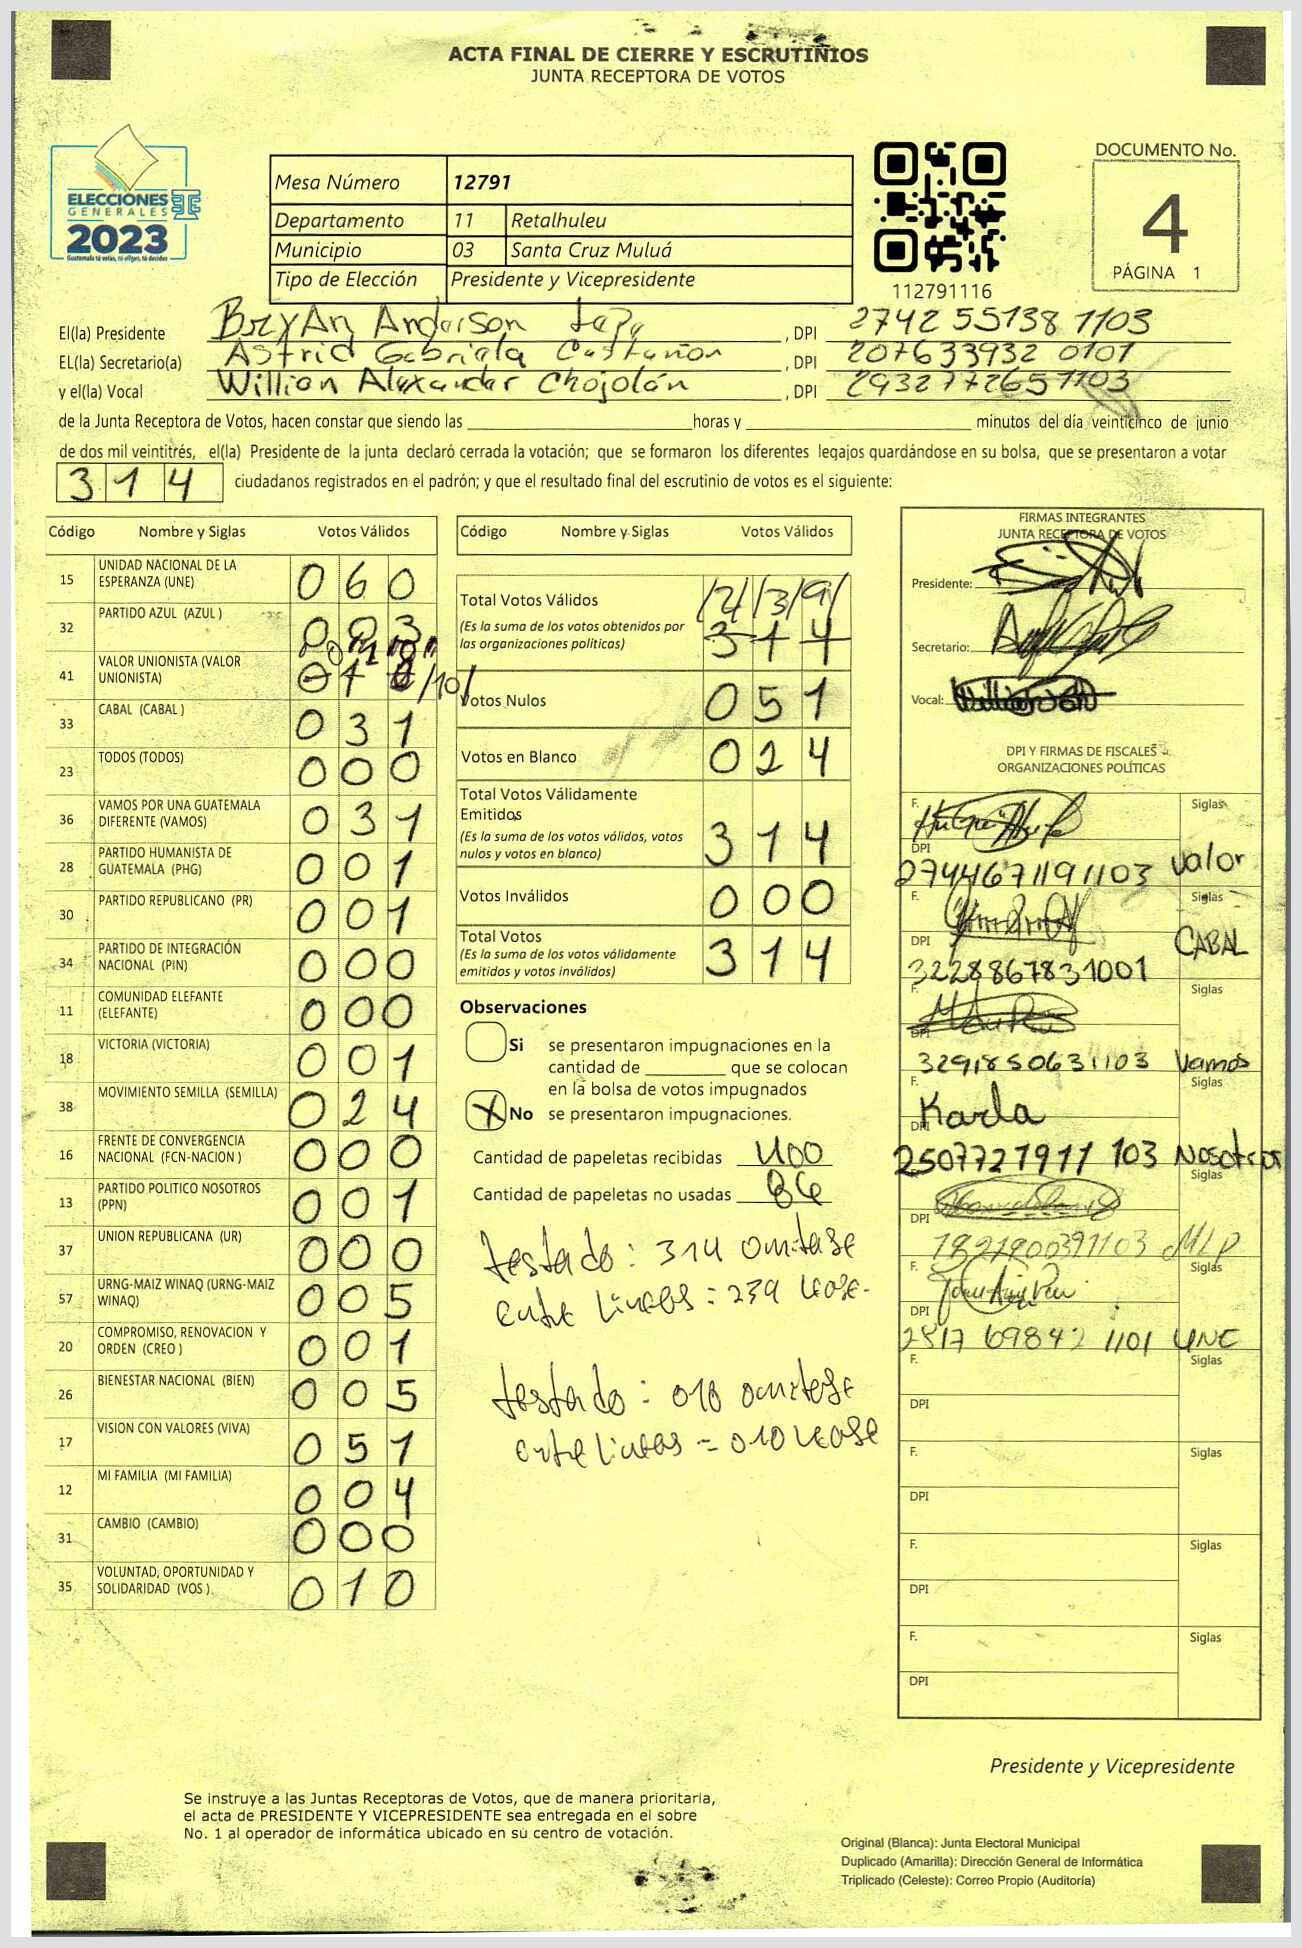 ACTA FINAL DE CIERRE Y ESCRUTINIOS
JUNTA RECEPTORA DE VOTOS
ELECCIONES
GENERALES
2023
Guatemala tú votas, tú eliges, tú decides
Mesa Número 12791
Departamento 11 Retalhuleu
Municipio 03 Santa Cruz Muluá
Tipo de Elección Presidente y Vicepresidente
112791116
DOCUMENTO No.
4
PÁGINA 1
El(la) Presidente Bryan Anderson , DPI 2742 55138 1103
EL(la) Secretario(a) Astrid Gabriela Castañon , DPI 207633932 0101
y el(la) Vocal Willian Alexander Chojolón , DPI 2932772651103
de la Junta Receptora de Votos, hacen constar que siendo las ____ horas y ____ minutos del día veinticinco de junio
de dos mil veintitrés, el(la) Presidente de la junta declaró cerrada la votación; que se formaron los diferentes legajos guardándose en su bolsa, que se presentaron a votar
314 ciudadanos registrados en el padrón; y que el resultado final del escrutinio de votos es el siguiente:
Código Nombre y Siglas Votos Válidos
15 UNIDAD NACIONAL DE LA ESPERANZA (UNE) 060
32 PARTIDO AZUL (AZUL ) 003
41 VALOR UNIONISTA (VALOR UNIONISTA) "010" /10/
33 CABAL (CABAL ) 031
23 TODOS (TODOS) 000
36 VAMOS POR UNA GUATEMALA DIFERENTE (VAMOS) 031
28 PARTIDO HUMANISTA DE GUATEMALA (PHG) 001
30 PARTIDO REPUBLICANO (PR) 001
34 PARTIDO DE INTEGRACIÓN NACIONAL (PIN) 000
11 COMUNIDAD ELEFANTE (ELEFANTE) 000
18 VICTORIA (VICTORIA) 001
38 MOVIMIENTO SEMILLA (SEMILLA) 024
16 FRENTE DE CONVERGENCIA NACIONAL (FCN-NACION ) 000
13 PARTIDO POLITICO NOSOTROS (PPN) 001
37 UNION REPUBLICANA (UR) 000
57 URNG-MAIZ WINAQ (URNG-MAIZ WINAQ) 005
20 COMPROMISO, RENOVACION Y ORDEN (CREO ) 001
26 BIENESTAR NACIONAL (BIEN) 005
17 VISION CON VALORES (VIVA) 051
12 MI FAMILIA (MI FAMILIA) 004
31 CAMBIO (CAMBIO) 000
35 VOLUNTAD, OPORTUNIDAD Y SOLIDARIDAD (VOS ) 010
Código Nombre y Siglas Votos Válidos
Total Votos Válidos /2/3/9/
(Es la suma de los votos obtenidos por las organizaciones políticas) 314
Votos Nulos 051
Votos en Blanco 024
Total Votos Válidamente Emitidos
(Es la suma de los votos válidos, votos nulos y votos en blanco) 314
Votos Inválidos 000
Total Votos
(Es la suma de los votos válidamente emitidos y votos inválidos) 314
Observaciones
Si se presentaron impugnaciones en la
cantidad de ____ que se colocan
en la bolsa de votos impugnados
X No se presentaron impugnaciones.
Cantidad de papeletas recibidas 400
Cantidad de papeletas no usadas 86
testado: 314 omitase
entre lineas = 239 lease.
testado: 010 omitese
entre lineas = 010 lease
FIRMAS INTEGRANTES
JUNTA RECEPTORA DE VOTOS
Presidente:
Secretario:
Vocal:
DPI Y FIRMAS DE FISCALES
ORGANIZACIONES POLÍTICAS
F. Siglas
DPI 2744671191103 Valor
F. Siglas
DPI 3228867831001 CABAL
F. Siglas
DPI 3291850631103 Vamos
F. Karla Siglas
DPI 2507727911 103 Nosotros
Siglas
DPI 1821200391103 MLP
F. Siglas
DPI 2817 69842 1101 UNE
F. Siglas
DPI
F. Siglas
DPI
F. Siglas
DPI
F. Siglas
DPI
Presidente y Vicepresidente
Se instruye a las Juntas Receptoras de Votos, que de manera prioritaria,
el acta de PRESIDENTE Y VICEPRESIDENTE sea entregada en el sobre
No. 1 al operador de informática ubicado en su centro de votación.
Original (Blanca): Junta Electoral Municipal
Duplicado (Amarilla): Dirección General de Informática
Triplicado (Celeste): Correo Propio (Auditoría)